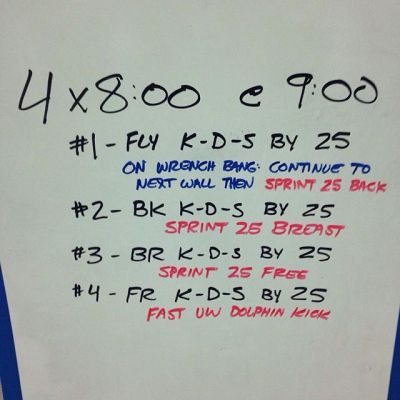 4 x 8:00 @ 9:00
#1 - FLY K-D-S BY 25
ON WRENCH BANG: CONTINUE TO
NEXT WALL THEN SPRINT 25 BACK
#2 - BK K-D-S BY 25
SPRINT 25 BREAST
#3 - BR K-D-S BY 25
SPRINT 25 FREE
#4 - FR K-D-S BY 25
FAST UW DOLPHIN KICK